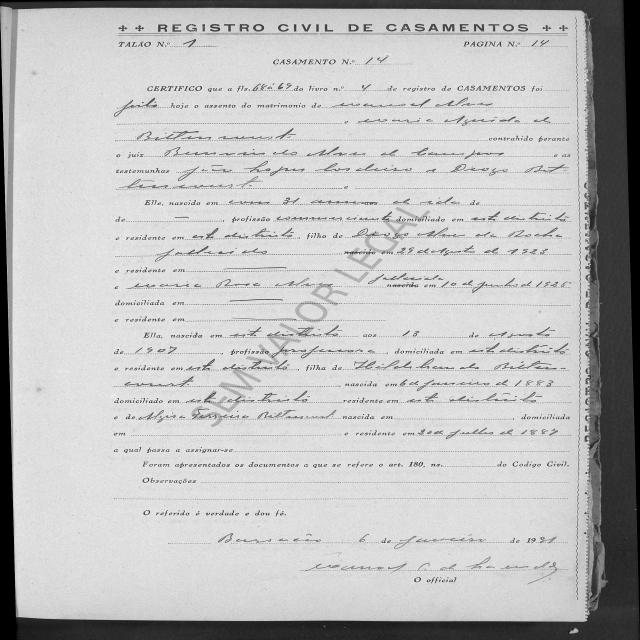 REGISTRO CIVIL DE CASAMENTOS
TALÃO N.º 1 PAGINA N.º 14
CASAMENTO N.º 14
CERTIFICO que a fls. 68 á 69 do livro n.º 4 de registro de CASAMENTOS foi
feito hoje o assento do matrimonio de Manoel Alves
e Maria Aguida de
Bittencourt contrahido perante
o juiz Alves de Campos e as
testemunhas João Lopes e Diogo Bit
tencourt. e
Elle, nascido em com 31 annos de idade de
de — , profissão commerciante domiciliado em este districto
e residente em este districto filho de Diogo Alves da Rocha
fallecido nascido em 29 de Agosto de 1923
e residente em
e Maria Rosa Alves fallecida nascida em 10 de Junho de 1925
domiciliada em
e residente em
Ella, nascida em este districto aos 13 de Agosto
de 1907 , profissão professora , domiciliada em este districto
e residente em este districto filha de Hildebrando Bitten-
court. nascida em 6 de Janeiro de 1883
domiciliado em este districto residente em este districto
e de Alzira Ferreira Bittencourt nascida em domiciliada
em e residente em 20 de Julho de 1887
a qual passa a assignar-se
Foram apresentados os documentos a que se refere o art. 180, ns. do Codigo Civil.
Observações
O referido é verdade e dou fé.
6 de Janeiro de 1931
Manoel
O official
SEM VALOR LEGAL
REGISTRO CIVIL DE CASAMENTOS